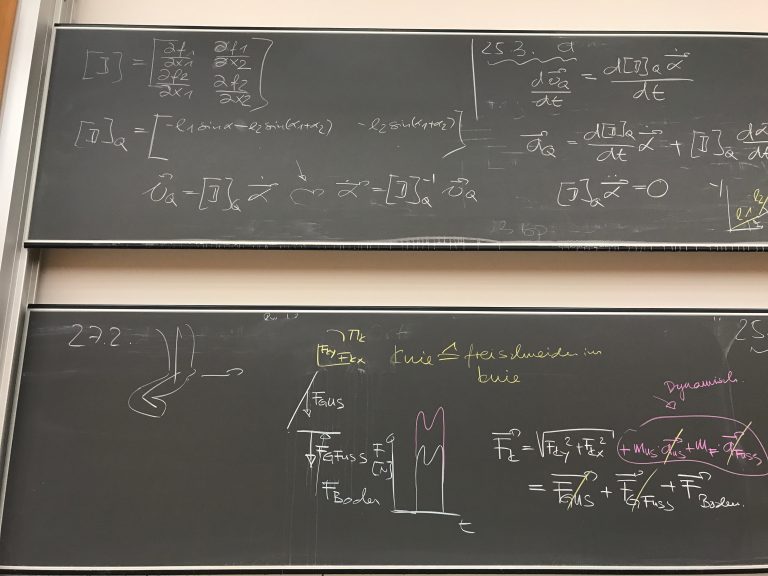 [J] = [∂f1/∂x1 ∂f1/∂x2
∂f2/∂x1 ∂f2/∂x2]
[J]Q = [-l1 sin α - l2 sin(α1+α2) -l2 sin(α1+α2)]
v⃗Q = [J]Q α̇⃗ α̇⃗ = [J]Q⁻¹ v⃗Q
25.3. a
dv⃗Q/dt = d[J]Q α̇⃗/dt
a⃗Q = d[J]Q/dt α̇⃗ + [J]Q
[J]Q α̈⃗ = 0
27.2.
Mk
Fky Fkx
Knie ≙ freischneiden im
Knie
FGUS
FGFuss
FBoden
F
[N]
t
25.
Dynamisch
F⃗k = √(Fky² + Fkx²) + mUS · a⃗US + mF · a⃗Fuss
= F⃗GUS + F⃗GFuss + F⃗Boden